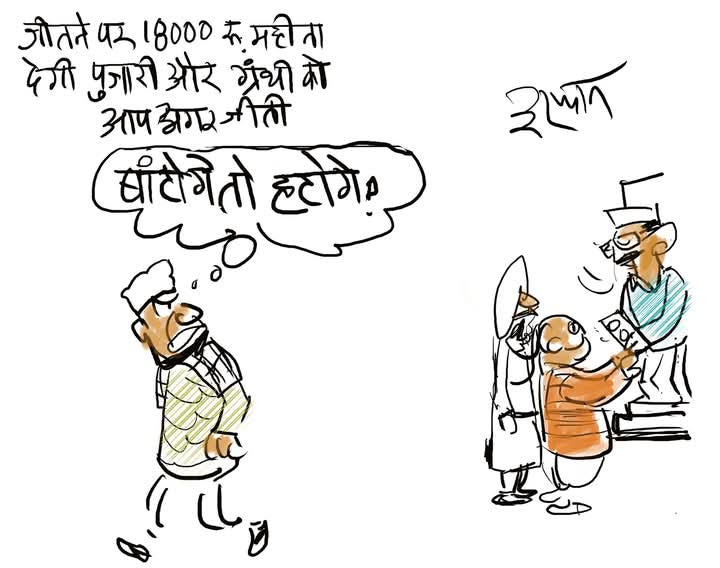 जीतने पर 18000 रु. महीना
देगी पुजारी और ग्रंथी को
आप अगर जीती
इरफान
बांटोगे तो हटोगे!